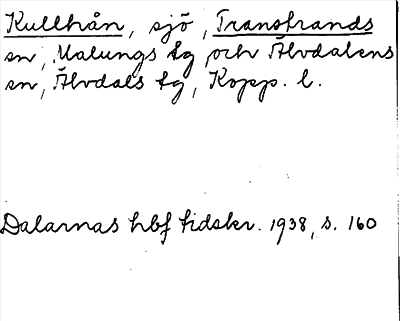 Kullhån, sjö, Transtrands
sn, Malungs tg och Älvdalens
sn, Älvdals tg, Kopp. l.
Dalarnas hbf tidskr. 1938, s. 160